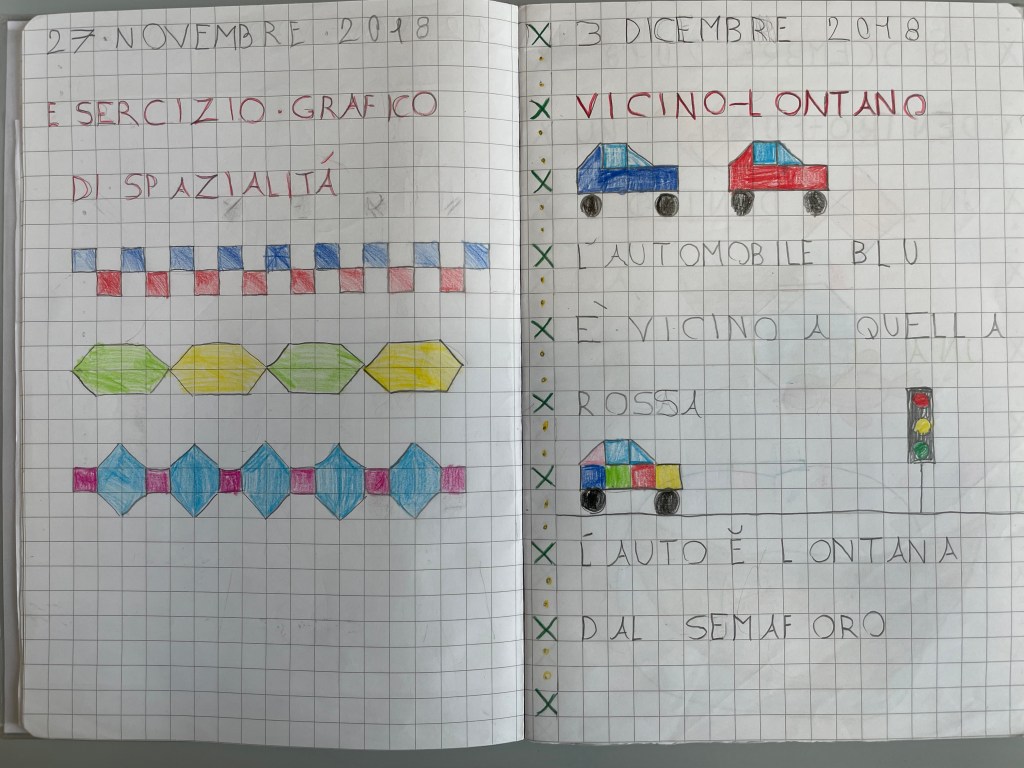 27·NOVEMBRE·2018
ESERCIZIO·GRAFICO
DI SPAZIALITÁ
3 DICEMBRE 2018
VICINO-LONTANO
L'AUTOMOBILE BLU
È·VICINO A QUELLA
ROSSA
L'AUTO È LONTANA
DAL SEMAFORO